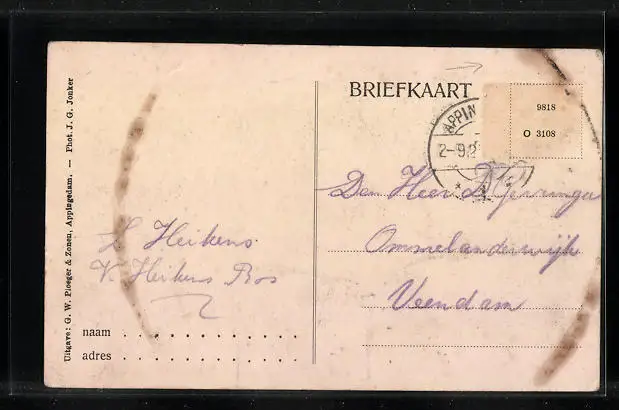 Uitgave: G. W. Ploeger & Zonen, Appingedam. — Phot. J. G. Jonker
BRIEFKAART
9818
O 3108
APPIN
2-9.2
Den Heer
Ommelanderwijk
Veendam
L Heikens.
V. Heikens Bos
naam
adres